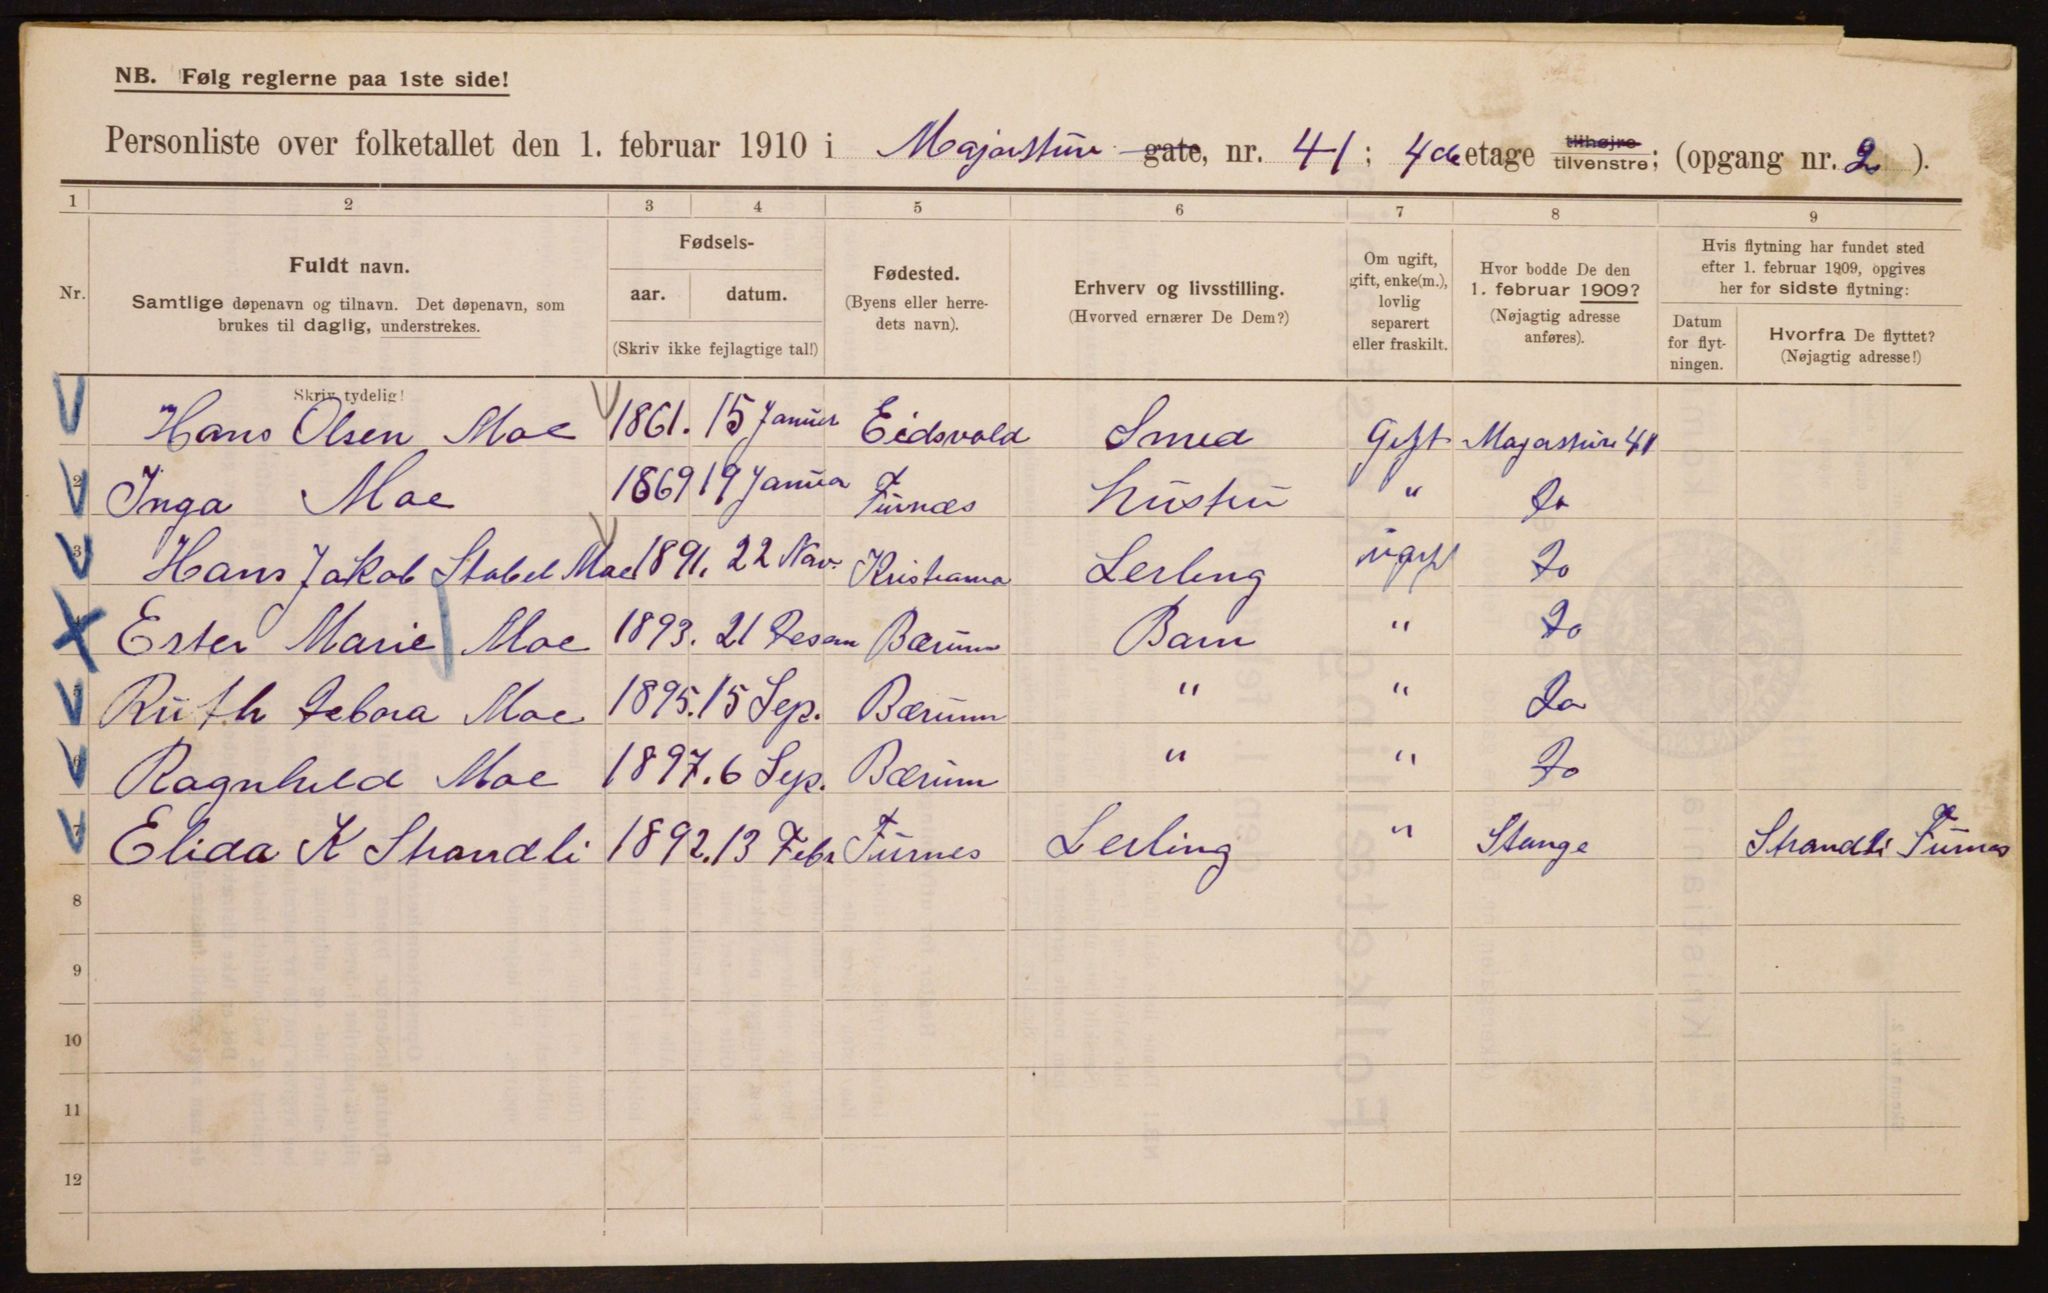 NB. Følg reglerne paa 1ste side!
Personliste over folketallet den 1. februar 1910 i Majorstuv gate, nr. 41; 4de etage tilhøjre tilvenstre; (opgang nr. 2).
1 2 3 4 5 6 7 8 9
Nr.
Fuldt navn.
Samtlige døpenavn og tilnavn. Det døpenavn, som
brukes til daglig, understrekes.
Skriv tydelig!
Fødsels-
aar. datum.
(Skriv ikke fejlagtige tal!)
Fødested.
(Byens eller herre-
dets navn).
Erhverv og livsstilling.
(Hvorved ernærer De Dem?)
Om ugift,
gift, enke(m.),
lovlig
separert
eller fraskilt.
Hvor bodde De den
1. februar 1909?
(Nøjagtig adresse
anføres).
Hvis flytning har fundet sted
efter 1. februar 1909, opgives
her for sidste flytning:
Datum
for flyt-
ningen.
Hvorfra De flyttet?
(Nøjagtig adresse!)
Hans Olsen Moe 1861. 15 Januer Eidsvold Smed Gift Majorstuv 41
2 Inga Moe 1869 19 Janua Furnæs Hustru " Do
3 Hans Jakob Stabel Moe 1891. 22 Nov. Kristiania Lerling ugift Do
4 Ester Marie Moe 1893. 21 Desem Bærum Barn " Do
5 Ruth Debora Moe 1895. 15 Sep. Bærum " " Do
6 Ragnhild Moe 1897. 6 Sep. Bærum " " Do
7 Elida K Strandli 1892. 13 Febr Furnes Lerling " Stange Strandli Furnes
8
9
10
11
12